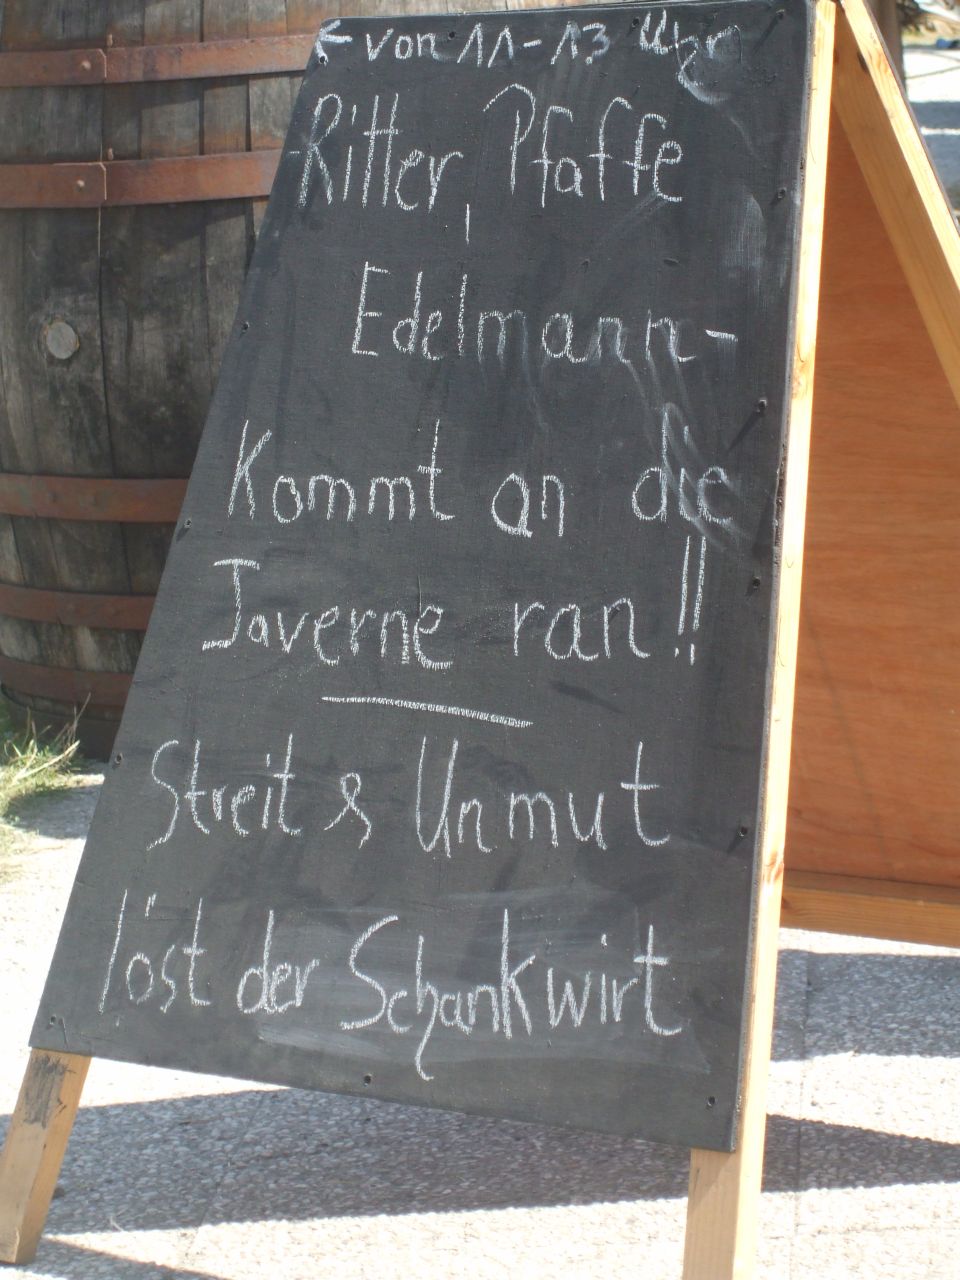 ← von 11-13 Uhr
Ritter, Pfaffe
Edelmann-
Kommt an die
Taverne ran!!
Streit & Unmut
löst der Schankwirt